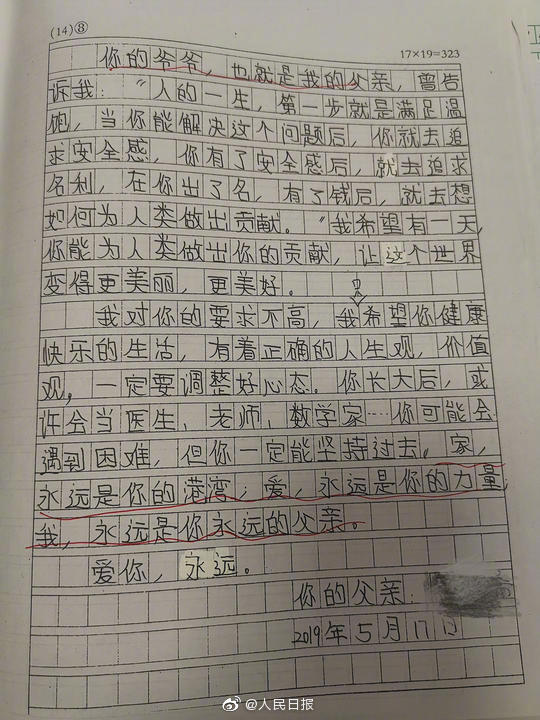 (14)⑧
17×19=323
你的爷爷，也就是我的父亲，曾告
诉我：“人的一生，第一步就是满足温
饱，当你能解决这个问题后，你就去追
求安全感，你有了安全感后，就去追求
名利，在你出了名，有了钱后，就去想
如何为人类做出贡献。”我希望有一天，
你能为人类做出你的贡献，让这个世界
变得更美丽，更美好。
我对你的要求不高，我希望你健康
快乐的生活，有着正确的人生观，价值
观，一定要调整好心态。你长大后，或
许会当医生、老师、数学家……你可能会
遇到困难，但你一定能坚持过去。家，
永远是你的港湾；爱，永远是你的力量；
我，永远是你永远的父亲。
爱你，永远。
你的父亲：
2019年5月17日
@人民日报